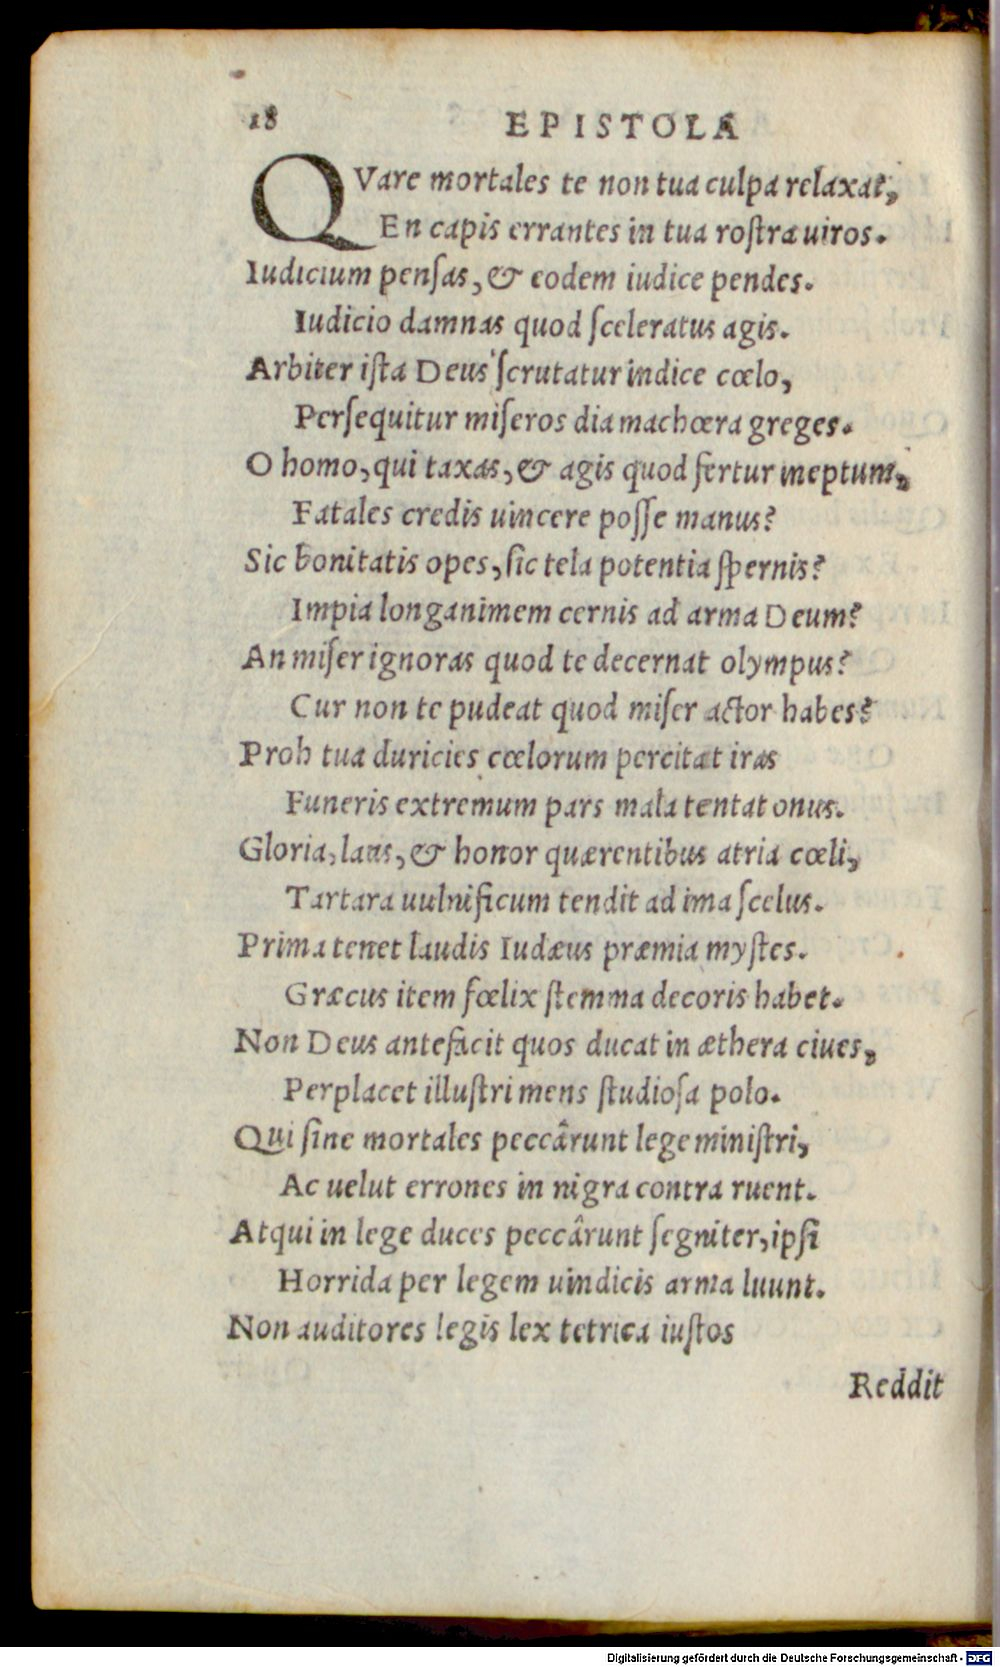 18 EPISTOLA
QVare mortales te non tua culpa relaxat,
En capis errantes in tua roſtra uiros.
Iudicium penſas, & eodem iudice pendes.
Iudicio damnas quod ſceleratus agis.
Arbiter iſta Deus ſcrutatur indice cœlo,
Perſequitur miſeros dia machœra greges.
O homo, qui taxas, & agis quod fertur ineptum,
Fatales credis uincere poſſe manus?
Sic bonitatis opes, ſic tela potentia ſpernis?
Impia longanimem cernis ad arma Deum?
An miſer ignoras quod te decernat olympus?
Cur non te pudeat quod miſer actor habes?
Proh tua duricies cœlorum percitat iras
Funeris extremum pars mala tentat onus.
Gloria, laus, & honor quærentibus atria cœli,
Tartara uulnificum tendit ad ima ſcelus.
Prima tenet laudis Iudæus præmia myſtes.
Græcus item fœlix ſtemma decoris habet.
Non Deus antefacit quos ducat in æthera ciues,
Perplacet illuſtri mens ſtudioſa polo.
Qui ſine mortales peccârunt lege miniſtri,
Ac uelut errones in nigra contra ruent.
Atqui in lege duces peccârunt ſegniter, ipſi
Horrida per legem uindicis arma luunt.
Non auditores legis lex tetrica iuſtos
Reddit
Digitalisierung gefördert durch die Deutsche Forschungsgemeinschaft - DFG